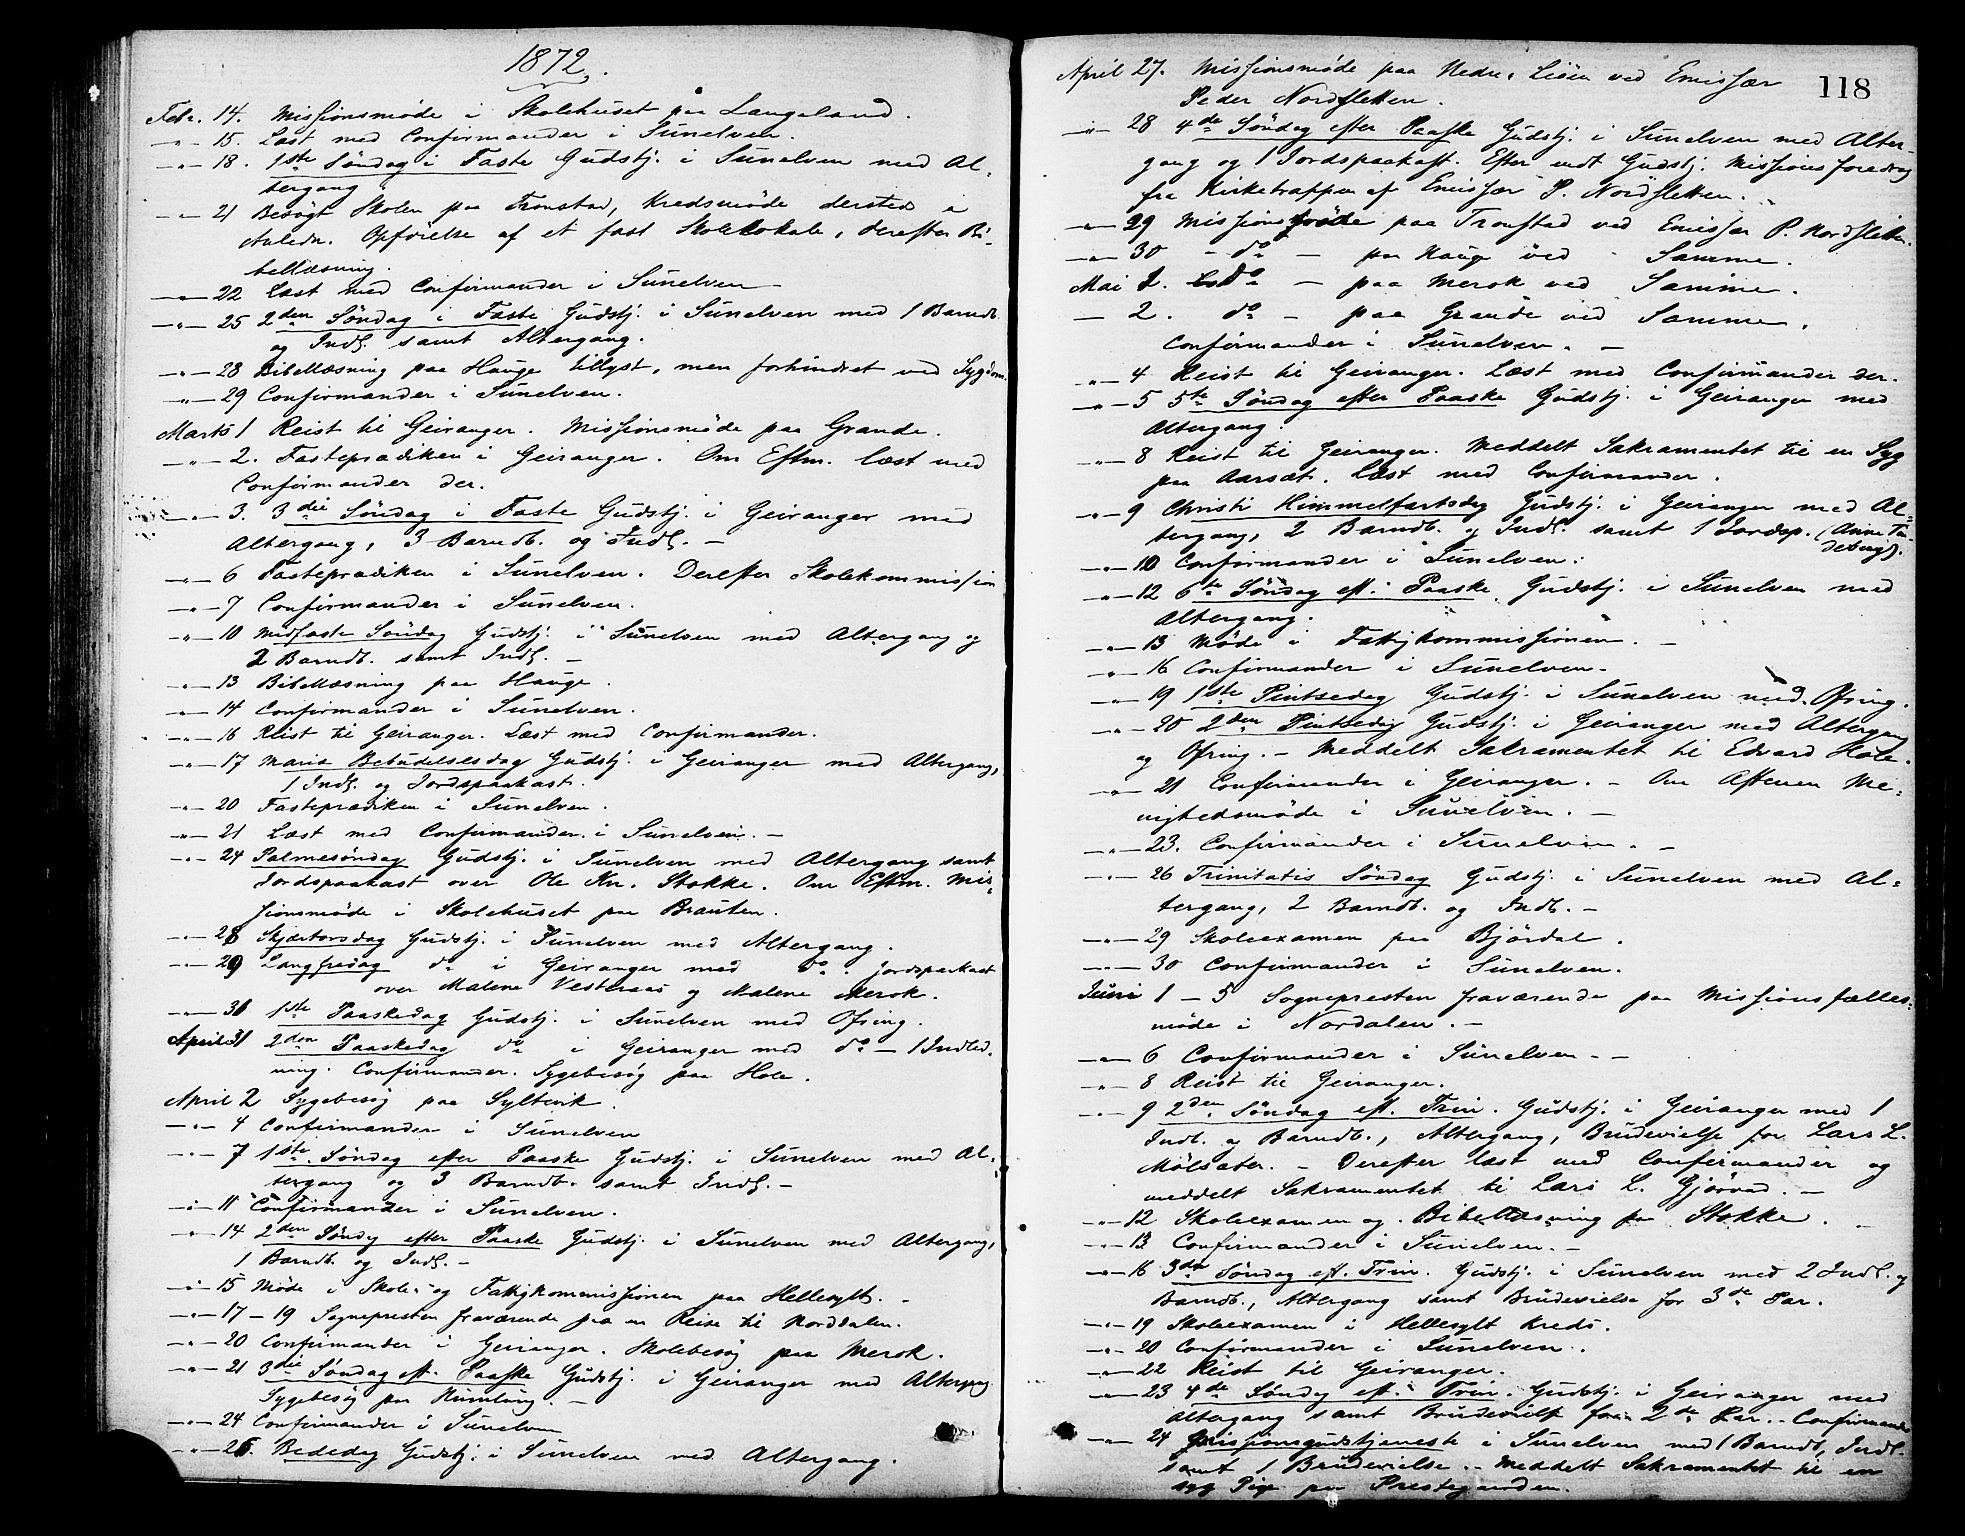 1872.
Febr. 14. Missionsmøde i Skolehuset paa Langeland.
-"- 15. Læst med Confirmander i Sunelven.
-"- 18. 1ste Søndag i Faste Gudstj. i Sunelven med Al-
tergang.
-"- 21 Besøgt Skolen paa Tronstad, Kredsmøde dersteds i
Anledn. Opførelse af et fast Skolelokale, derefter Bi-
bellæsning.
-"- 22 Læst med Confirmander i Sunelven
-"- 25 2den Søndag i Faste Gudstj. i Sunelven med 1 Barndb.
og Indl. samt Altergang.
-"- 28 Bibellæsning paa Hauge tillyst, men forhindret ved Sygdom.
-"- 29 Confirmander i Sunelven.
Marts 1 Reist til Geiranger. Missionsmøde paa Grande.
-"- 2. Fasteprædiken i Geiranger. Om Eftm. læst med
Confirmander der.
-"- 3. 3die Søndag i Faste Gudstj. i Geiranger med
Altergang, 3 Barndb. og Indl. -
-"- 6 Fasteprædiken i Sunelven. Derefter Skolekommission
-"- 7 Confirmander i Sunelven.
-"- 10 Midfaste Søndag Gudstj. i Sunelven med Altergang og
2 Barndb. samt Indl. -
-"- 13 Bibellæsning paa Hauge.
-"- 14 Confirmander i Sunelven.
-"- 16 Reist til Geiranger. Læst med Confirmander.
-"- 17 Mariæ Bebudelsesdag Gudstj. i Geiranger med Altergang,
1 Indl. og Jordspaakast.
-"- 20 Fasteprædiken i Sunelven.
-"- 21 Læst med Confirmander i Sunelven. -
-"- 24 Palmesøndag Gudstj. i Sunelven med Altergang samt
Jordspaakast over Ole Kn. Stokke. Om Eftm. Mis-
sionsmøde i Skolehuset paa Brauten.
-"- 28 Skjærtorsdag Gudstj. i Sunelven med Altergang.
-"- 29 Langfredag do i Geiranger med do. Jordspaakast
over Malene Vesteraas og Malene Merok.
-"- 31 1ste Paaskedag Gudstj. i Sunelven med Ofring.
April 1 2den Paaskedag do i Geiranger med do - 1 Indled-
ning. Confirmander. Sygebesøg paa Hole.
April 2 Sygebesøg paa Syltevik.
-"- 4 Confirmander i Sunelven
-"- 7 1ste Søndag efter Paaske Gudstj. i Sunelven med Al-
tergang og 3 Barndb. samt Indl. -
-"- 11 Confirmander i Sunelven.
-"- 14 2den Søndg efter Paaske Gudstj. i Sunelven med Altergang,
1 Barndb. og Indl. -
-"- 15 Møde i Skole- og Fattigkommissionen paa Hellesylt. -
-"- 17 - 19 Sognepresten fraværende paa en Reise til Norddalen.
-"- 20 Confirmander i Geiranger. Skolebesøg paa Merok.
-"- 21 3die Søndag eft. Paaske Gudstj. i Geiranger med Altergang
Sygebesøg paa -
-"- 24 Confirmander i Sunelven
-"- 26. Bededag Gudstj. i Sunelven med Altergang.
118
April 27. Missionsmøde paa Nedre Liøen ved Emissær
Peder Nordsletten.
-"- 28 4de Søndag efter Paaske Gudstj. i Sunelven med Alter-
gang og 1 Jordspaakast. Efter endt Gudstj. Missionsforedrag
fra Kirketrappen af Emissær P. Nordsletten.
-"- 29 Missionsmøde paa Tronstad ved Emissær P. Nordsletten.
-"- 30 - do - paa Hauge ved Samme.
Mai 1. do - paa Merok ved Samme.
- 2. do - paa Grande ved Samme.
Confirmander i Sunelven. -
-"- 4 Reist til Geiranger. Læst med Confirmander der.
-"- 5 5te Søndag efter Paaske Gudstj. i Geiranger med
Altergang.
-"- 8 Reist til Geiranger. Meddelt Sakramentet til en Syg
paa Aarsæt. Læst med Confirmander.
-"- 9 Christi Himmelfartsdag Gudstj. i Geiranger med Al-
tergang, 2 Barndb. og Indl. samt 1 Jordsp. (Anne
-"- 10 Confirmander i Sunelven.
-"- 12 6te Søndag eft. Paaske Gudstj. i Sunelven med
Altergang.
-"- 13 Møde i Fattigkommissionen. -
-"- 16 Confirmander i Sunelven.
-"- 19 1ste Pintsedag Gudstj. i Sunelven med Ofring.
-"- 20 2den Pintsedag Gudstj. i Geiranger med Altergang
og Ofring. - Meddelt Sakramentet til Edvard Hole.
-"- 21 Confirmander i Geiranger. - Om Aftenen Me-
nighedsmøde i Sunelven. -
-"- 23. Confirmander i Sunelven. -
-"- 26 Trinitatis Søndag Gudstj. i Sunelven med Al-
tergang, 2 Barndb. og Indl. -
-"- 29 Skoleexamen paa Bjørdal.
-"- 30 Confirmander i Sunelven.
Juni 1 - 5 Sognepresten fraværende paa Missionsfælles-
møde i Nordalen. -
-"- 6 Confirmander i Sunelven. -
-"- 8 Reist til Geiranger.
-"- 9 2den Søndag eft. Trin. Gudstj. i Geiranger med 1
Indl. og Barndb., Altergang, Brudevielse for Lars L.
Mølsæter. - Derefter læst med Confirmander og
meddelt Sakramentet til Lars L. Gjørvad. -
-"- 12 Skoleexamen og Bibellæsning paa Stokke. -
-"- 13 Confirmander i Sunelven. -
-"- 16 3die Søndag eft. Trin. Gudstj. i Sunelven med 2 Indl. og
Barndb., Altergang samt Brudevielse for 3de Par.
-"- 19 Skoleexamen i Hellesylt Kreds.
-"- 20 Confirmander i Sunelven.
-"- 22 Reist til Geiranger.
-"- 23 4de Søndag eft. Trin. Gudstj. i Geiranger med
Altergang samt Brudevielse for 2de Par. - Confirmander
-"- 24 Missionsgudstjeneste i Sunelven med 1 Barndb., Indl.
samt 1 Brudevielse. - Meddelt Sakramentet til en
syg Pige paa Prestegaarden.